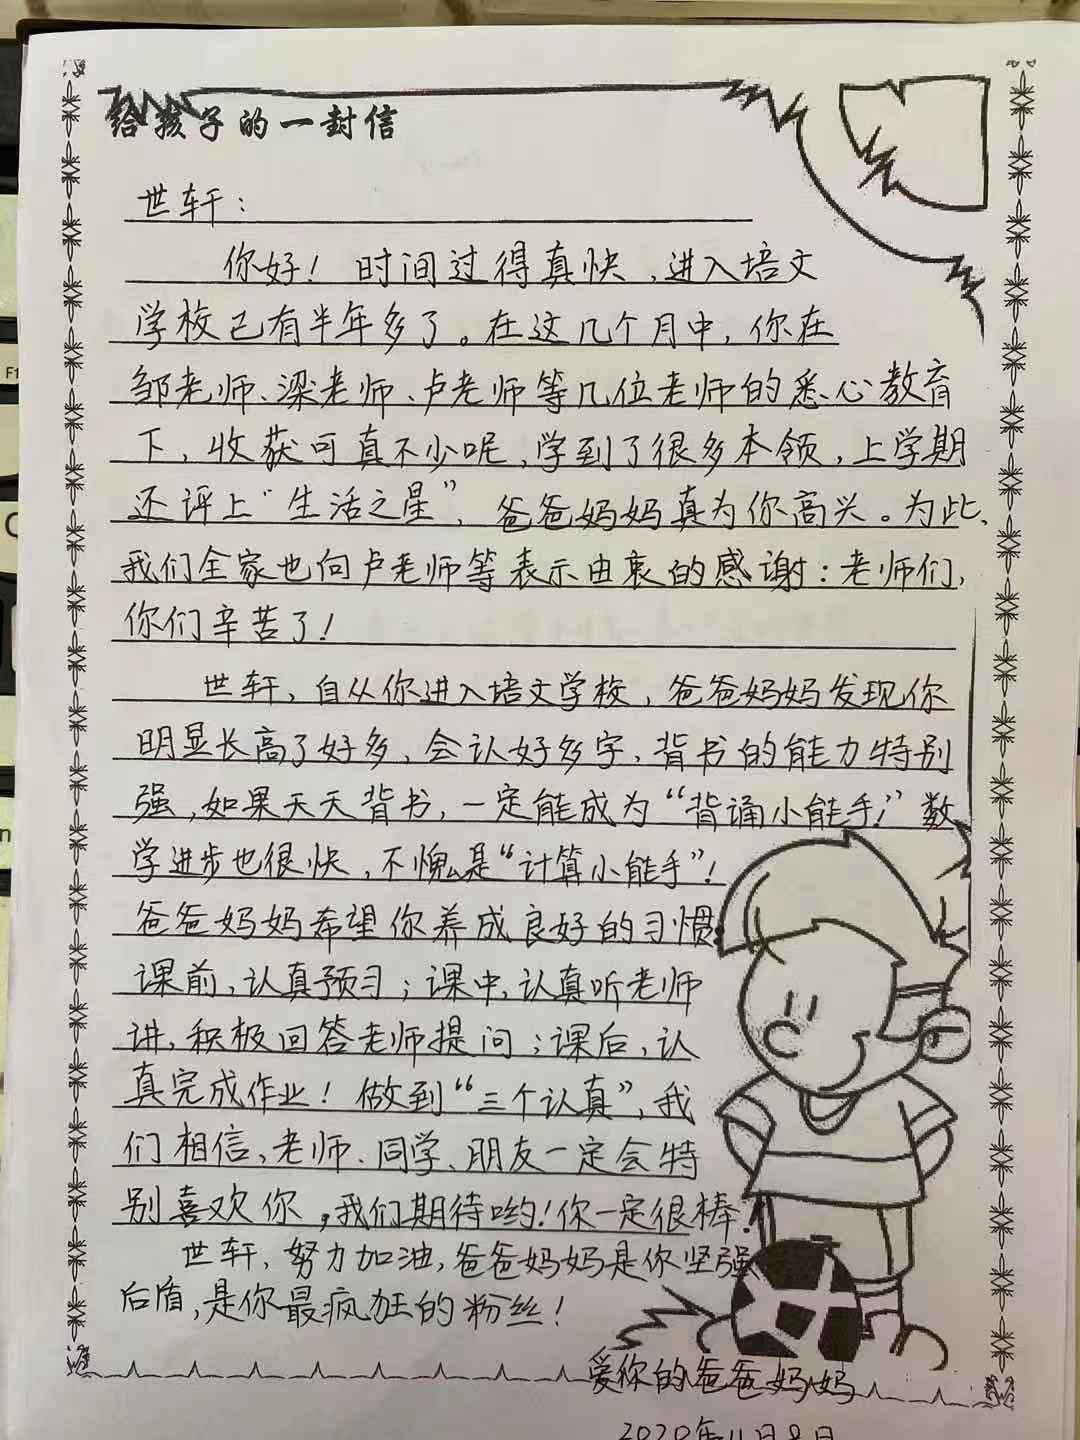 给孩子的一封信
世轩：
你好！时间过得真快，进入培文
学校已有半年多了。在这几个月中，你在
邹老师、梁老师、卢老师等几位老师的悉心教育
下，收获可真不少呢，学到了很多本领，上学期
还评上“生活之星”，爸爸妈妈真为你高兴。为此、
我们全家也向卢老师等表示由衷的感谢：老师们，
你们辛苦了！
世轩，自从你进入培文学校，爸爸妈妈发现你
明显长高了好多，会认好多字，背书的能力特别
强，如果天天背书，一定能成为“背诵小能手！”数
学进步也很快，不愧是“计算小能手”！
爸爸妈妈希望你养成良好的习惯：
课前，认真预习；课中，认真听老师
讲，积极回答老师提问；课后，认
真完成作业！做到“三个认真”，我
们相信，老师、同学、朋友一定会特
别喜欢你，我们期待哟！你一定很棒！
世轩，努力加油，爸爸妈妈是你坚强
后盾，是你最疯狂的粉丝！
爱你的爸爸妈妈
2020年11月8日